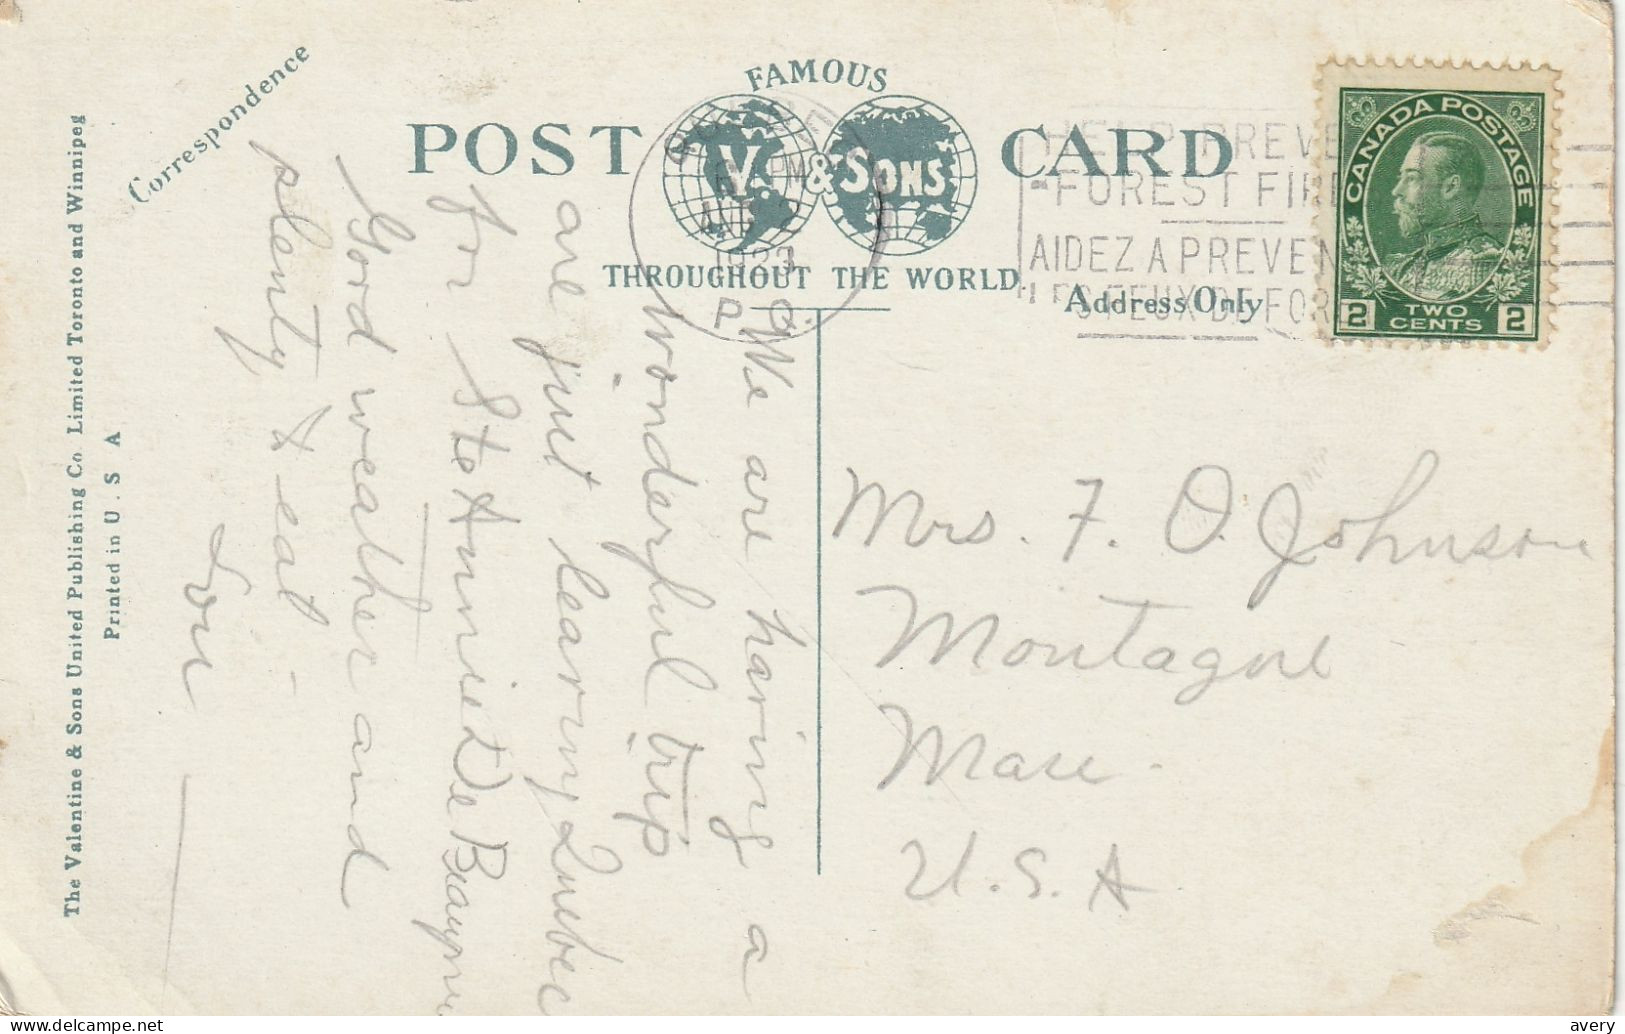 FAMOUS
POST CARD
V. & SONS
THROUGHOUT THE WORLD
Correspondence
Address Only
The Valentine & Sons United Publishing Co. Limited Toronto and Winnipeg
Printed in U. S A
PM
1923
P. Q.
HELP PREVE
FOREST FIR
AIDEZ A PREVEN
FEUX DE FOR
CANADA POSTAGE
2 TWO CENTS 2
We are having a
wonderful trip
are just learing Quebec
for Ste Anne De Beaupre
Good weather and
plenty to eat -
Mrs. F. O. Johnson
Montague
Mass.
U.S.A
avery